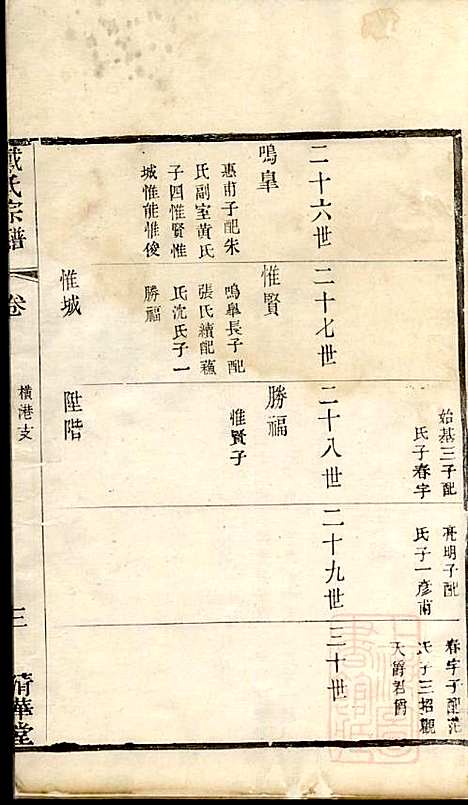 始基三子配
氏子春字
亮明子配
氏子一彥甫
春字子配范
氏子三招觀
天爵君爵
二十六世
二十七世
二十八世
二十九世
三十世
鳴臯
惠甫子配朱
氏副室黄氏
子四惟賢惟
城惟能惟俊
惟賢
鳴臯長子配
張氏續配蘓
氏沈氏子一
勝福
勝福
惟賢子
惟城
陞階
戴氏宗譜
卷
橫港支
三
清華堂